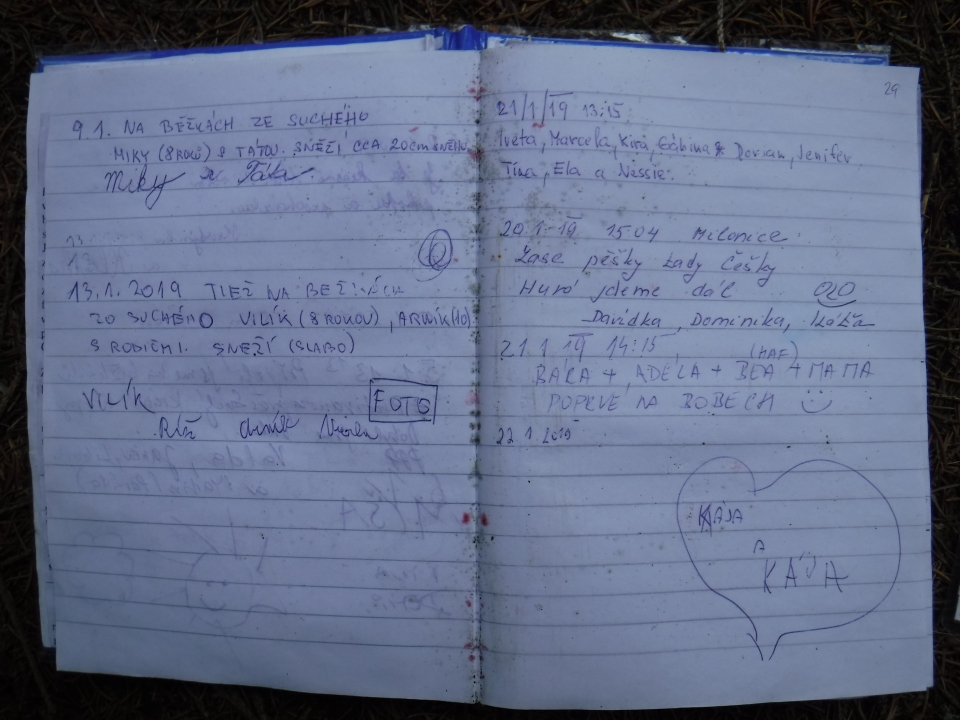 9.1. NA BĚŽKÁCH ZE SUCHÉHO
MIKY (8 ROKŮ) S TÁTOU. SNĚŽÍ, CCA 20CM SNĚHU
Miky a Táta.
13.
13.1.2019 TIEŽ NA BEŽKÁCH
ZO SUCHÉHO VILÍK (8 ROKOV), ARWÍK (10)
S RODIČMI. SNEŽÍ (SLABO)
VILÍK
FOTO
29
21/1/19 13:15
Iveta, Marcela, Kira, Gábina Dorian, Jenifer
Tina, Ela a Nessie.
20.1.19 15 04 Milonice
Zase pěšky tady Češky
Huró jdeme dál
Davidka, Dominika,
21.1 19 14:15
(HAF)
BÁRA + ADÉLA + BEA + MAMA
POPRVÉ NA BOBECH
22.1.2019
KÁJA
A
KÁJA